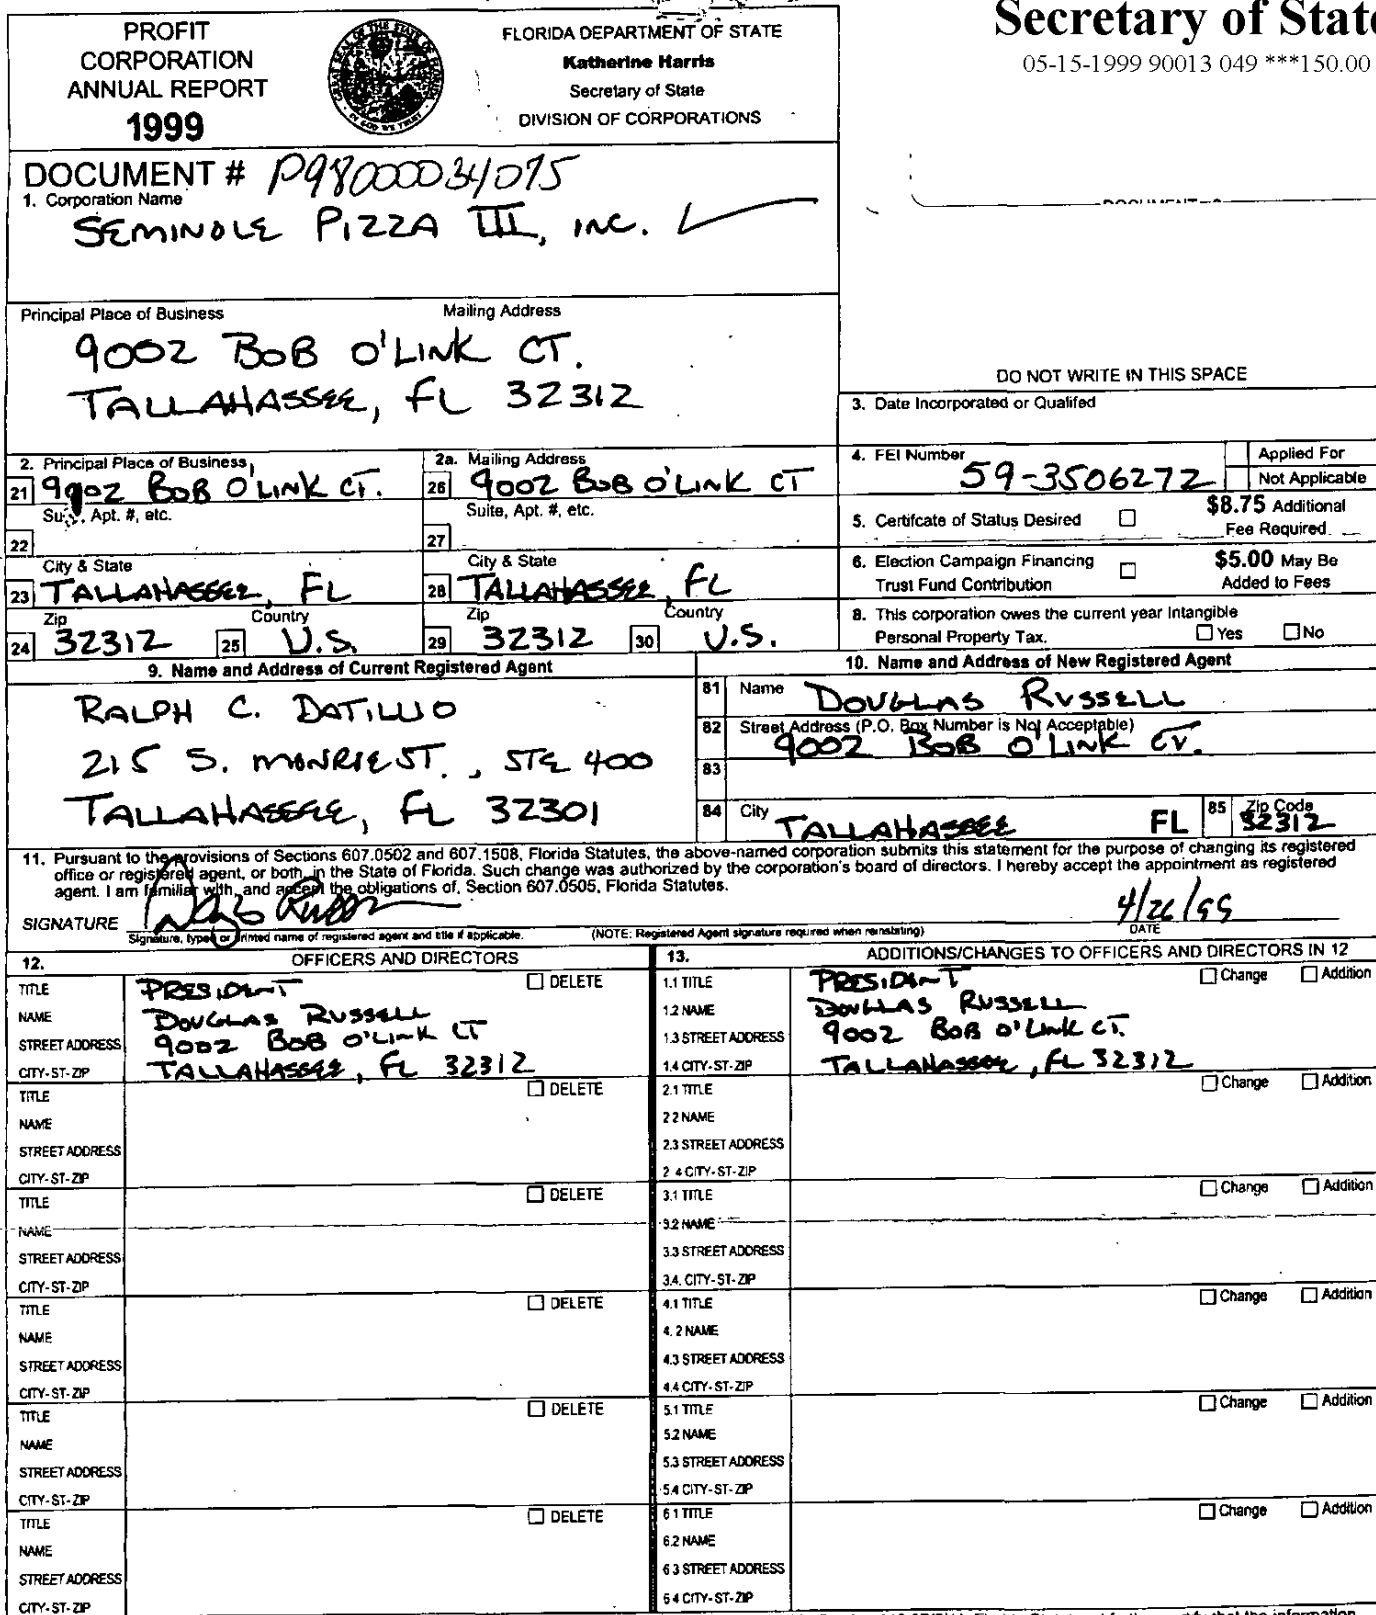 PROFIT
CORPORATION
ANNUAL REPORT
1999
FLORIDA DEPARTMENT OF STATE
Katherine Harris
Secretary of State
DIVISION OF CORPORATIONS
Secretary of State
05-15-1999 90013 049 ***150.00
DOCUMENT # P98000034075
1. Corporation Name
SEMINOLE PIZZA III, INC.
Principal Place of Business Mailing Address
9002 BOB O'LINK CT.
TALLAHASSEE, FL 32312
DO NOT WRITE IN THIS SPACE
3. Date Incorporated or Qualifed
2. Principal Place of Business
21 9002 BOB O'LINK CT.
Suite, Apt. #, etc.
22
City & State
23 TALLAHASSEE, FL
Zip Country
24 32312 25 U.S.
2a. Mailing Address
26 9002 BOB O'LINK CT
Suite, Apt. #, etc.
27
City & State
28 TALLAHASSEE, FL
Zip Country
29 32312 30 U.S.
4. FEI Number
59-3506272
Applied For
Not Applicable
5. Certifcate of Status Desired
$8.75 Additional
Fee Required
6. Election Campaign Financing
Trust Fund Contribution
$5.00 May Be
Added to Fees
8. This corporation owes the current year Intangible
Personal Property Tax. Yes No
9. Name and Address of Current Registered Agent
RALPH C. DATILLIO
215 S. MONROE ST., STE 400
TALLAHASSEE, FL 32301
10. Name and Address of New Registered Agent
81 Name DOUGLAS RUSSELL
82 Street Address (P.O. Box Number is Not Acceptable)
9002 BOB O'LINK CT.
83
84 City TALLAHASSEE FL 85 Zip Code 32312
11. Pursuant to the provisions of Sections 607.0502 and 607.1508, Florida Statutes, the above-named corporation submits this statement for the purpose of changing its registered
office or registered agent, or both, in the State of Florida. Such change was authorized by the corporation's board of directors. I hereby accept the appointment as registered
agent. I am familiar with, and accept the obligations of, Section 607.0505, Florida Statutes.
SIGNATURE 4/26/99
Signature, typed or printed name of registered agent and title if applicable. (NOTE: Registered Agent signature required when reinstating) DATE
12. OFFICERS AND DIRECTORS
TITLE PRESIDENT DELETE
NAME DOUGLAS RUSSELL
STREET ADDRESS 9002 BOB O'LINK CT
CITY-ST-ZIP TALLAHASSEE, FL 32312
TITLE DELETE
NAME
STREET ADDRESS
CITY-ST-ZIP
TITLE DELETE
NAME
STREET ADDRESS
CITY-ST-ZIP
TITLE DELETE
NAME
STREET ADDRESS
CITY-ST-ZIP
TITLE DELETE
NAME
STREET ADDRESS
CITY-ST-ZIP
TITLE DELETE
NAME
STREET ADDRESS
CITY-ST-ZIP
13. ADDITIONS/CHANGES TO OFFICERS AND DIRECTORS IN 12
1.1 TITLE PRESIDENT Change Addition
1.2 NAME DOUGLAS RUSSELL
1.3 STREET ADDRESS 9002 BOB O'LINK CT.
1.4 CITY-ST-ZIP TALLAHASSEE, FL 32312
2.1 TITLE Change Addition
2 2 NAME
2.3 STREET ADDRESS
2 4 CITY-ST-ZIP
3.1 TITLE Change Addition
3.2 NAME
3.3 STREET ADDRESS
3.4. CITY-ST-ZIP
4.1 TITLE Change Addition
4. 2 NAME
4.3 STREET ADDRESS
4.4 CITY-ST-ZIP
5.1 TITLE Change Addition
5.2 NAME
5.3 STREET ADDRESS
5.4 CITY-ST-ZIP
6 1 TITLE Change Addition
6.2 NAME
6 3 STREET ADDRESS
6 4 CITY-ST-ZIP